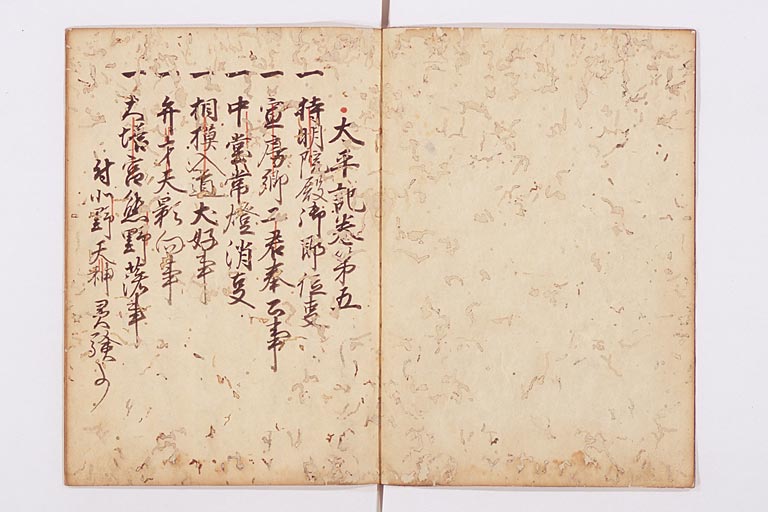 太平記巻第五
一 持明院殿御即位事
一 宣房卿二君奉公事
一 中堂常燈消事
一 相模入道犬好事
一 弁才天影向事
一 大塔宮熊野落事
付小野天神霊験事